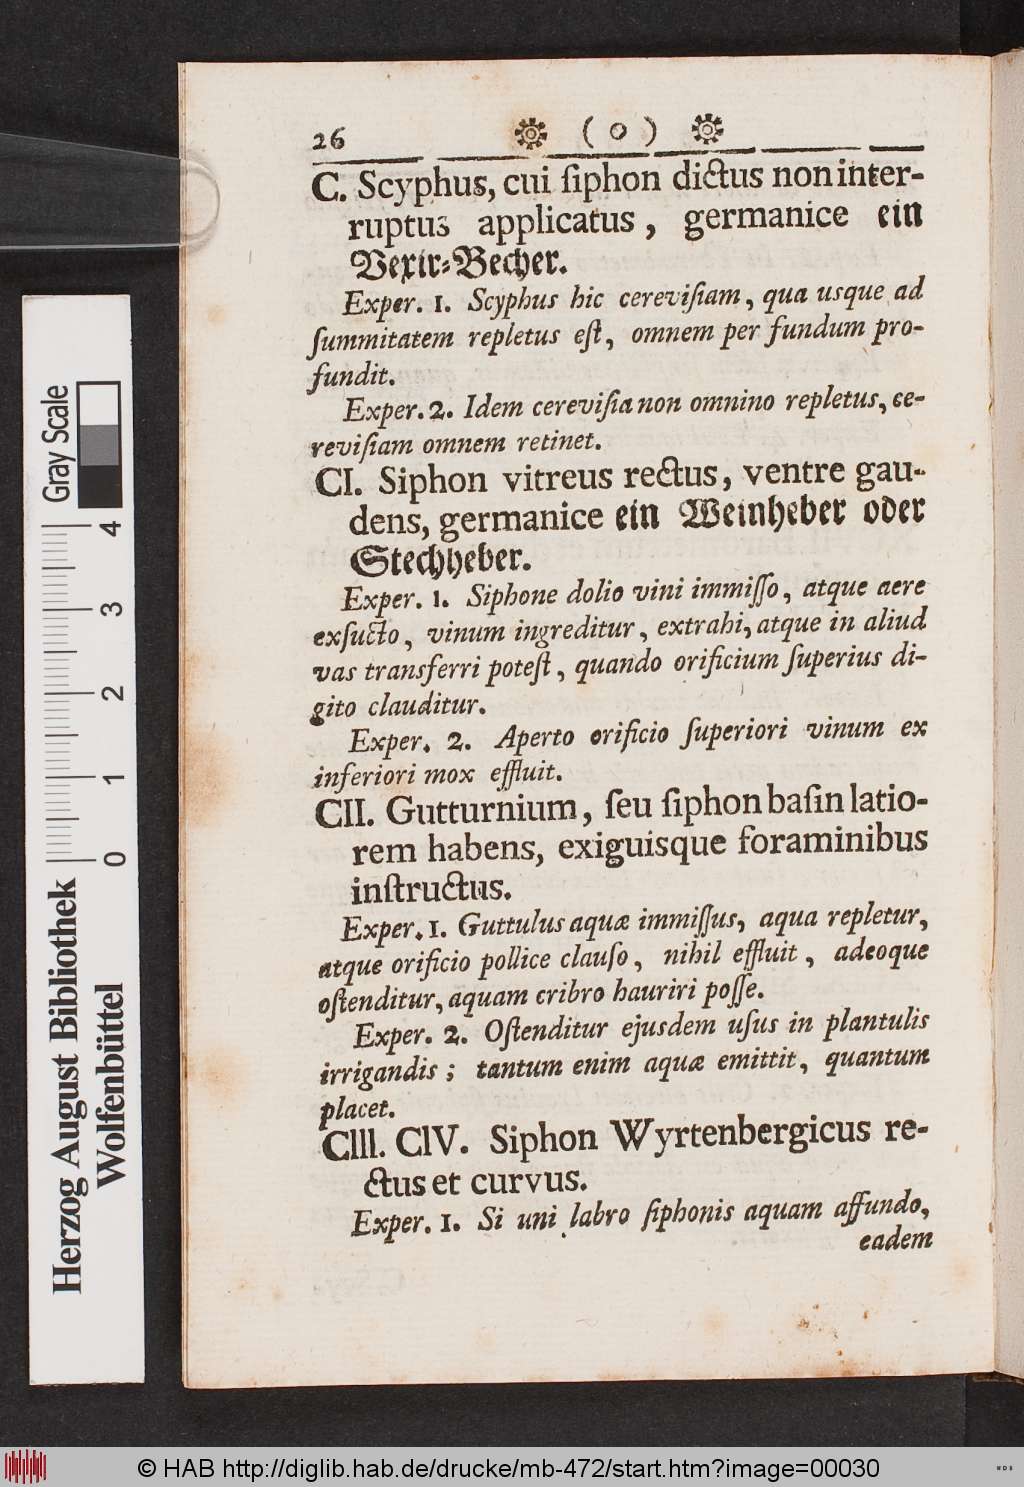 26 ( o )
C. Scyphus, cui ſiphon dictus non inter-
ruptus applicatus, germanice ein
Vexir-Becher.
Exper. 1. Scyphus hic cereviſiam, qua usque ad
ſummitatem repletus eſt, omnem per fundum pro-
fundit.
Exper. 2. Idem cereviſia non omnino repletus, ce-
reviſiam omnem retinet.
CI. Siphon vitreus rectus, ventre gau-
dens, germanice ein Weinheber oder
Stechheber.
Exper. 1. Siphone dolio vini immiſſo, atque aere
exſucto, vinum ingreditur, extrahi, atque in aliud
vas transferri poteſt, quando orificium ſuperius di-
gito clauditur.
Exper. 2. Aperto orificio ſuperiori vinum ex
inferiori mox effluit.
CII. Gutturnium, ſeu ſiphon baſin latio-
rem habens, exiguisque foraminibus
inſtructus.
Exper. 1. Guttulus aquæ immiſſus, aqua repletur,
atque orificio pollice clauſo, nihil effluit, adeoque
oſtenditur, aquam cribro hauriri poſſe.
Exper. 2. Oſtenditur ejusdem uſus in plantulis
irrigandis; tantum enim aquæ emittit, quantum
placet.
CIII. CIV. Siphon Wyrtenbergicus re-
ctus et curvus.
Exper. 1. Si uni labro ſiphonis aquam affundo,
eadem
Gray Scale
0 1 2 3 4
Herzog August Bibliothek
Wolfenbüttel
© HAB http://diglib.hab.de/drucke/mb-472/start.htm?image=00030